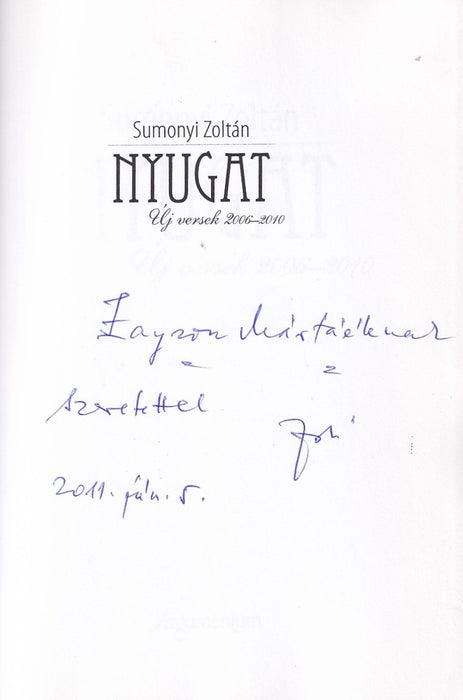 Sumonyi Zoltán
NYUGAT
Új versek 2006–2010
Zayzon Mártáéknak
szeretettel
Zoli
2011. jún. 5.